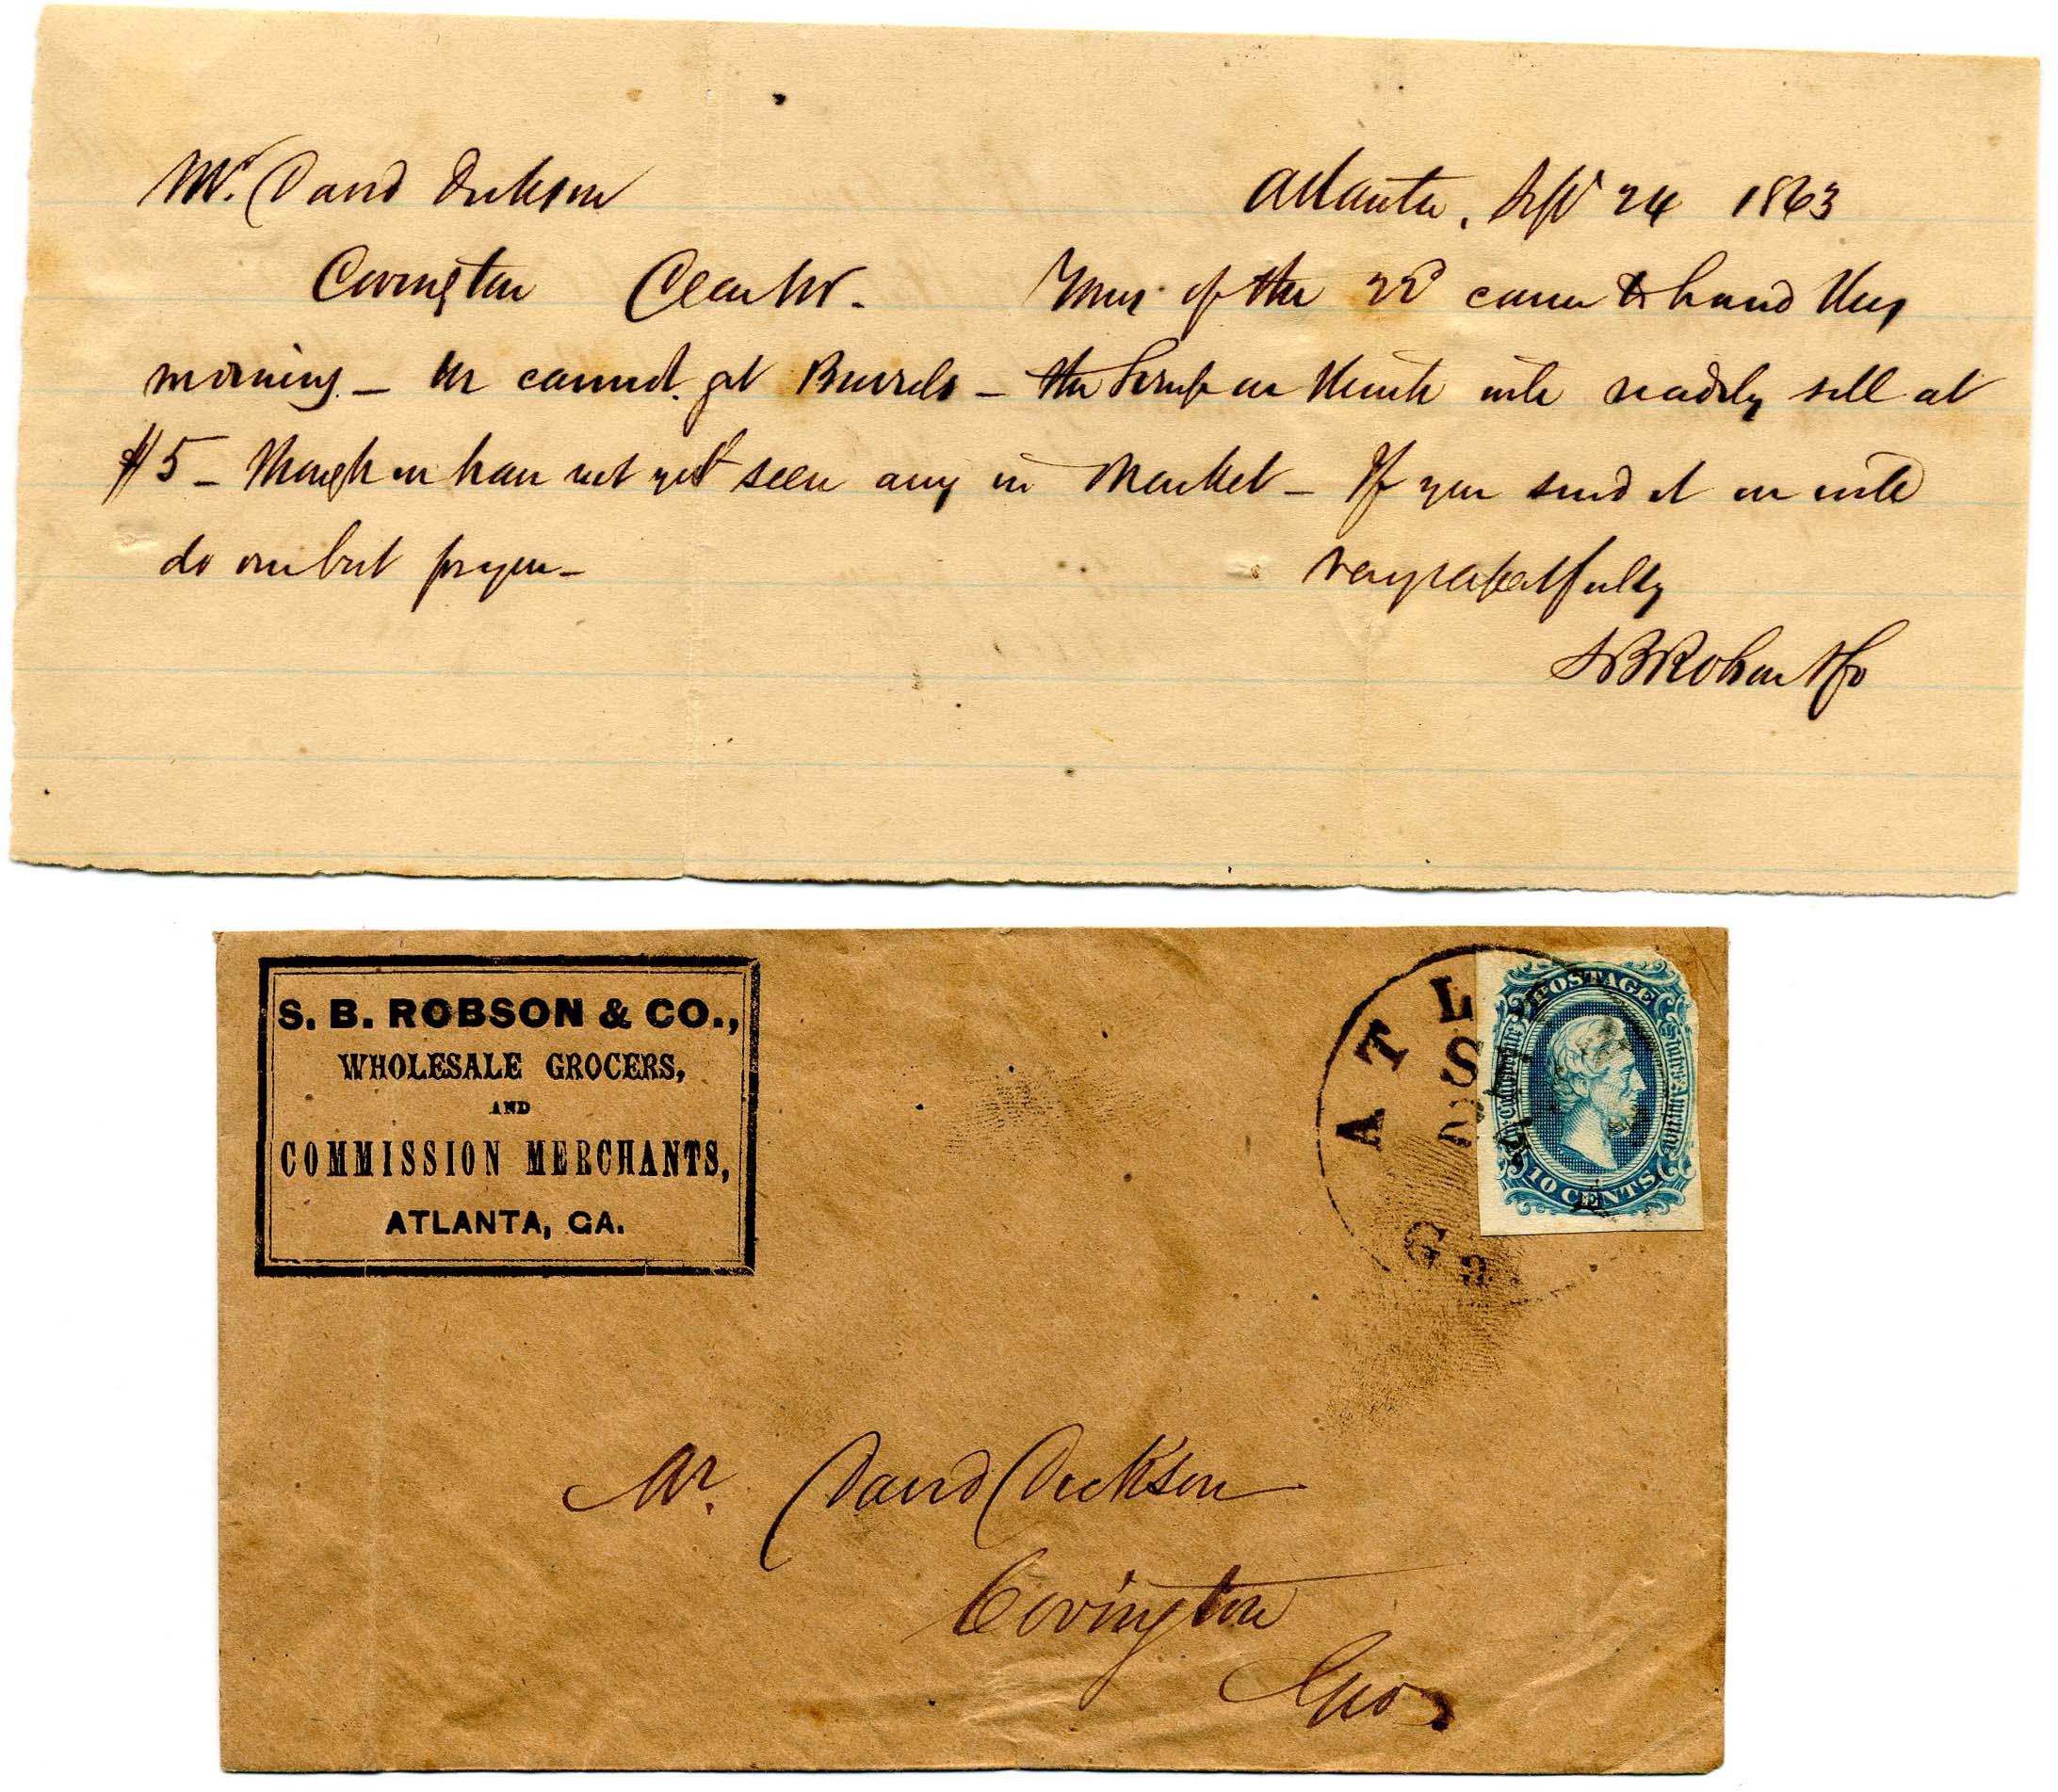 Mr. David Dickson Atlanta, Sept 24 1863
Covington Dear Sir. Yours of the 22d came to hand this
morning – We cannot get Barrels – the Syrup we think will readily sell at
$5 – though we have not yet seen any in Market – If you send it we will
do our best for you –
Very respectfully
S B Robson & Co
S. B. ROBSON & CO.,
WHOLESALE GROCERS,
AND
COMMISSION MERCHANTS,
ATLANTA, GA.
ATL
S
2
Ga
POSTAGE
The Confederate States of America
10 CENTS
Mr. David Dickson
Covington
Geo